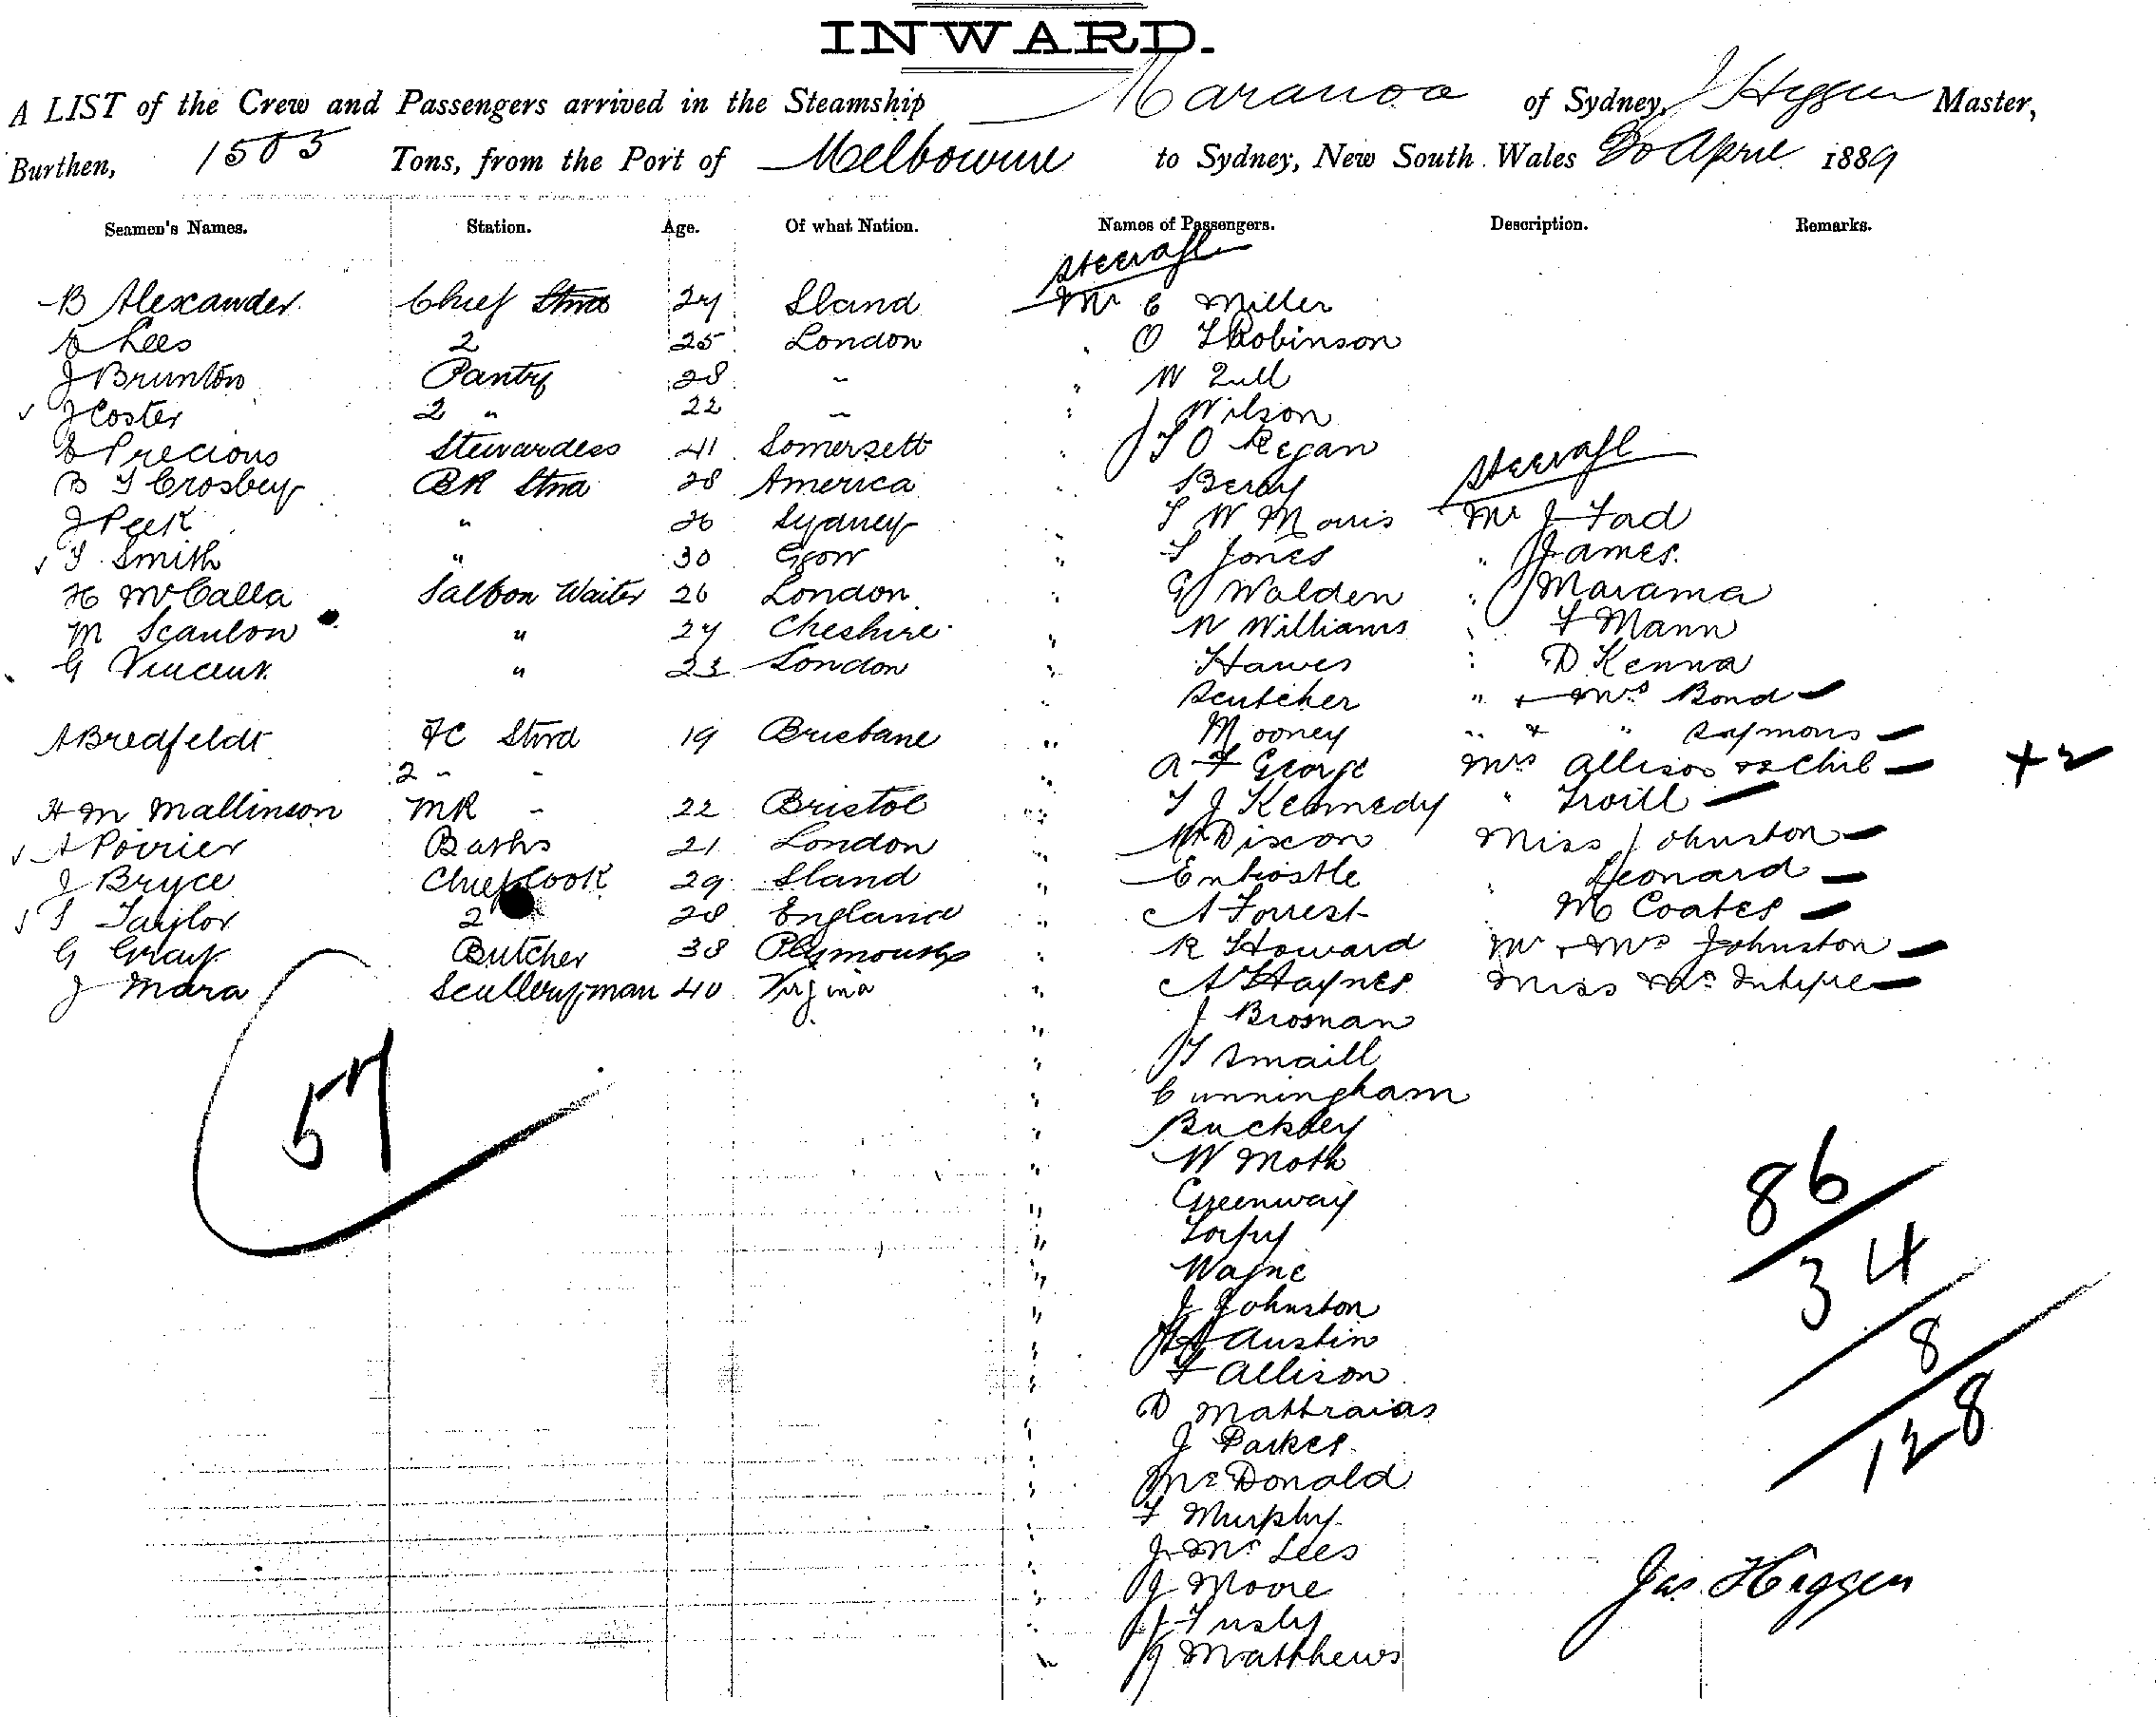 INWARD.
A LIST of the Crew and Passengers arrived in the Steamship Maranoa of Sydney, J Heggen Master,
Burthen, 1505 Tons, from the Port of Melbourne to Sydney, New South Wales April 1889
Seamen's Names. Station. Age. Of what Nation. Names of Passengers. Description. Remarks.
Steerage
B Alexander Chief Strd 27 Sland Mr C Miller
Lees 2 25 London " O Robinson
J Brunton Pantry 28 " " W
J Coster 2 " 22 " " J Wilson
Precious Stewardess 41 Somersett " O Regan
Steerage
B Crosby BR Strd 28 America " Berry
J Peek " 26 Sydney " W Morris Mr J
Smith " 30 Ggow " Jones " J James
H McCalla Saloon Waiter 26 London " G Walden " J Marama
M Scanlon " 27 Cheshire " W Williams " F Mann
G Vincent " 23 London " Hawes " D Kenna
" Scutcher " & Mrs Bond
A Bredfeldt FC Strd 19 Brisbane " Mooney " & " Symons
2 " " " A F George Mrs Allison & 2 Chil + 2
H M Mallinson MR " 22 Bristol " T J Kennedy "
A Poirier Baths 21 London " Dixon Miss Johnston
J Bryce Chief Cook 29 Sland " Entwistle " Leonard
Taylor 2 28 England " A Forrest " M Coates
G Gray Butcher 38 Plymouth " R Howard Mr & Mrs Johnston
J Mara Scullery man 40 Virginia " A Haynes Miss McIntyre
" J Brosnan
" Smaill
57
" Cunningham
" Buckley
" W Moth
" Greenway
86
" Torpy
" Wayne
34
" J Johnston
" Austin
8
" F Allison
" D Mattraias
128
" J Parkes
" McDonald
" F Murphy
" J McLees
" J Moore
Jas. Heggen
" J
" J Matthews